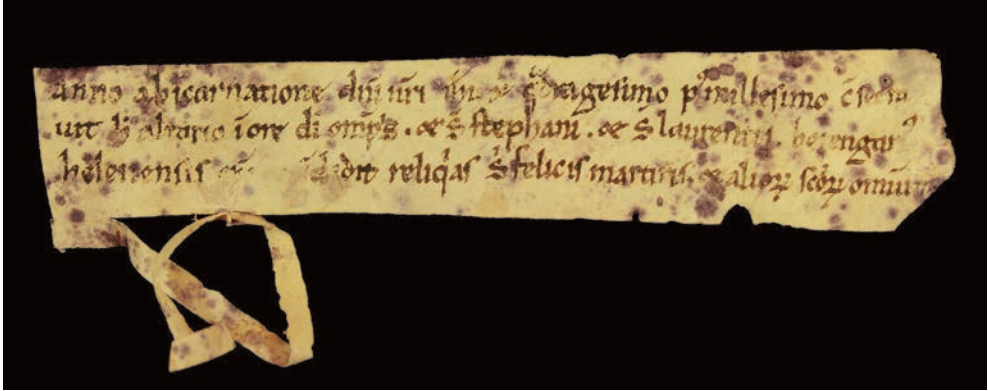 anno abīcarnatione dn̄i nr̄i ihu xr̄ q̄dragesimo p̾ millesimo
uit h̄ altario ī onore dī omp̄s . & s̄ stephani . & s̄ laurentii . berengari᾽
helenensis ep̄ dit reliq̄as s̄ felicis martiris . & alioꝝ sc̄oꝝ omniū